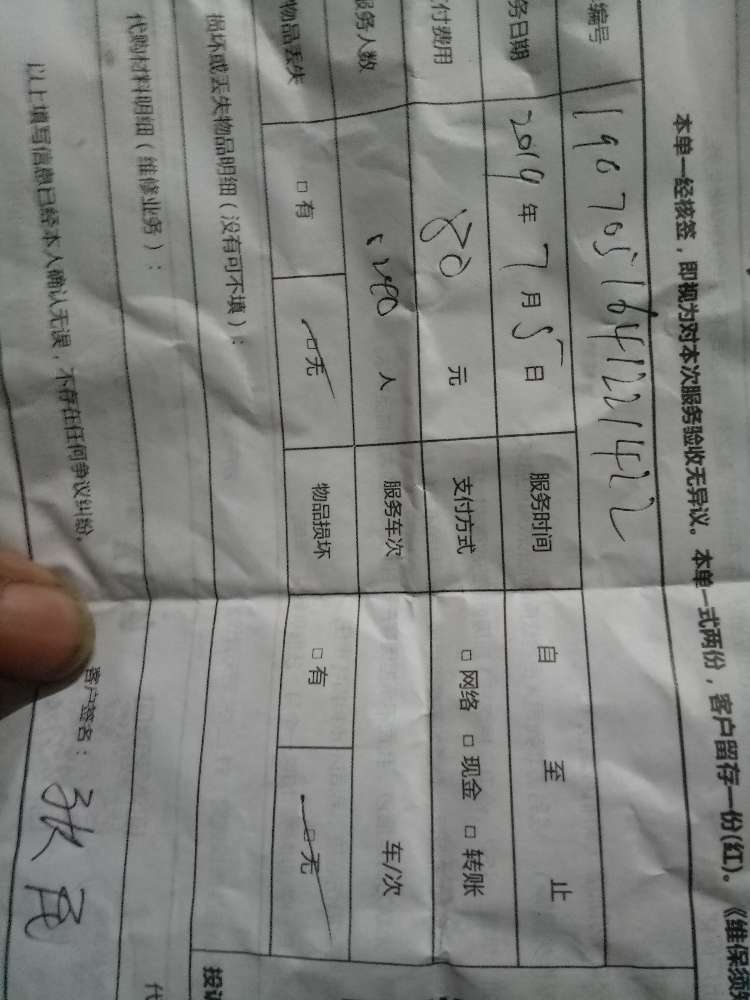 本单一经核签，即视为对本次服务验收无异议。本单一式两份，客户留存一份(红)。《维保须
编号 1907051641221422
务日期 2019年7月5日 服务时间 自 至 止
付费用 80元 支付方式 □网络 □现金 □转账
服务人数 人 服务车次 车/次
物品丢失 □有 □无 物品损坏 □有 □无
损坏或丢失物品明细（没有可不填）：
投诉
代购材料明细（维修业务）：
代
以上填写信息已经本人确认无误，不存在任何争议纠纷。 客户签名： 张